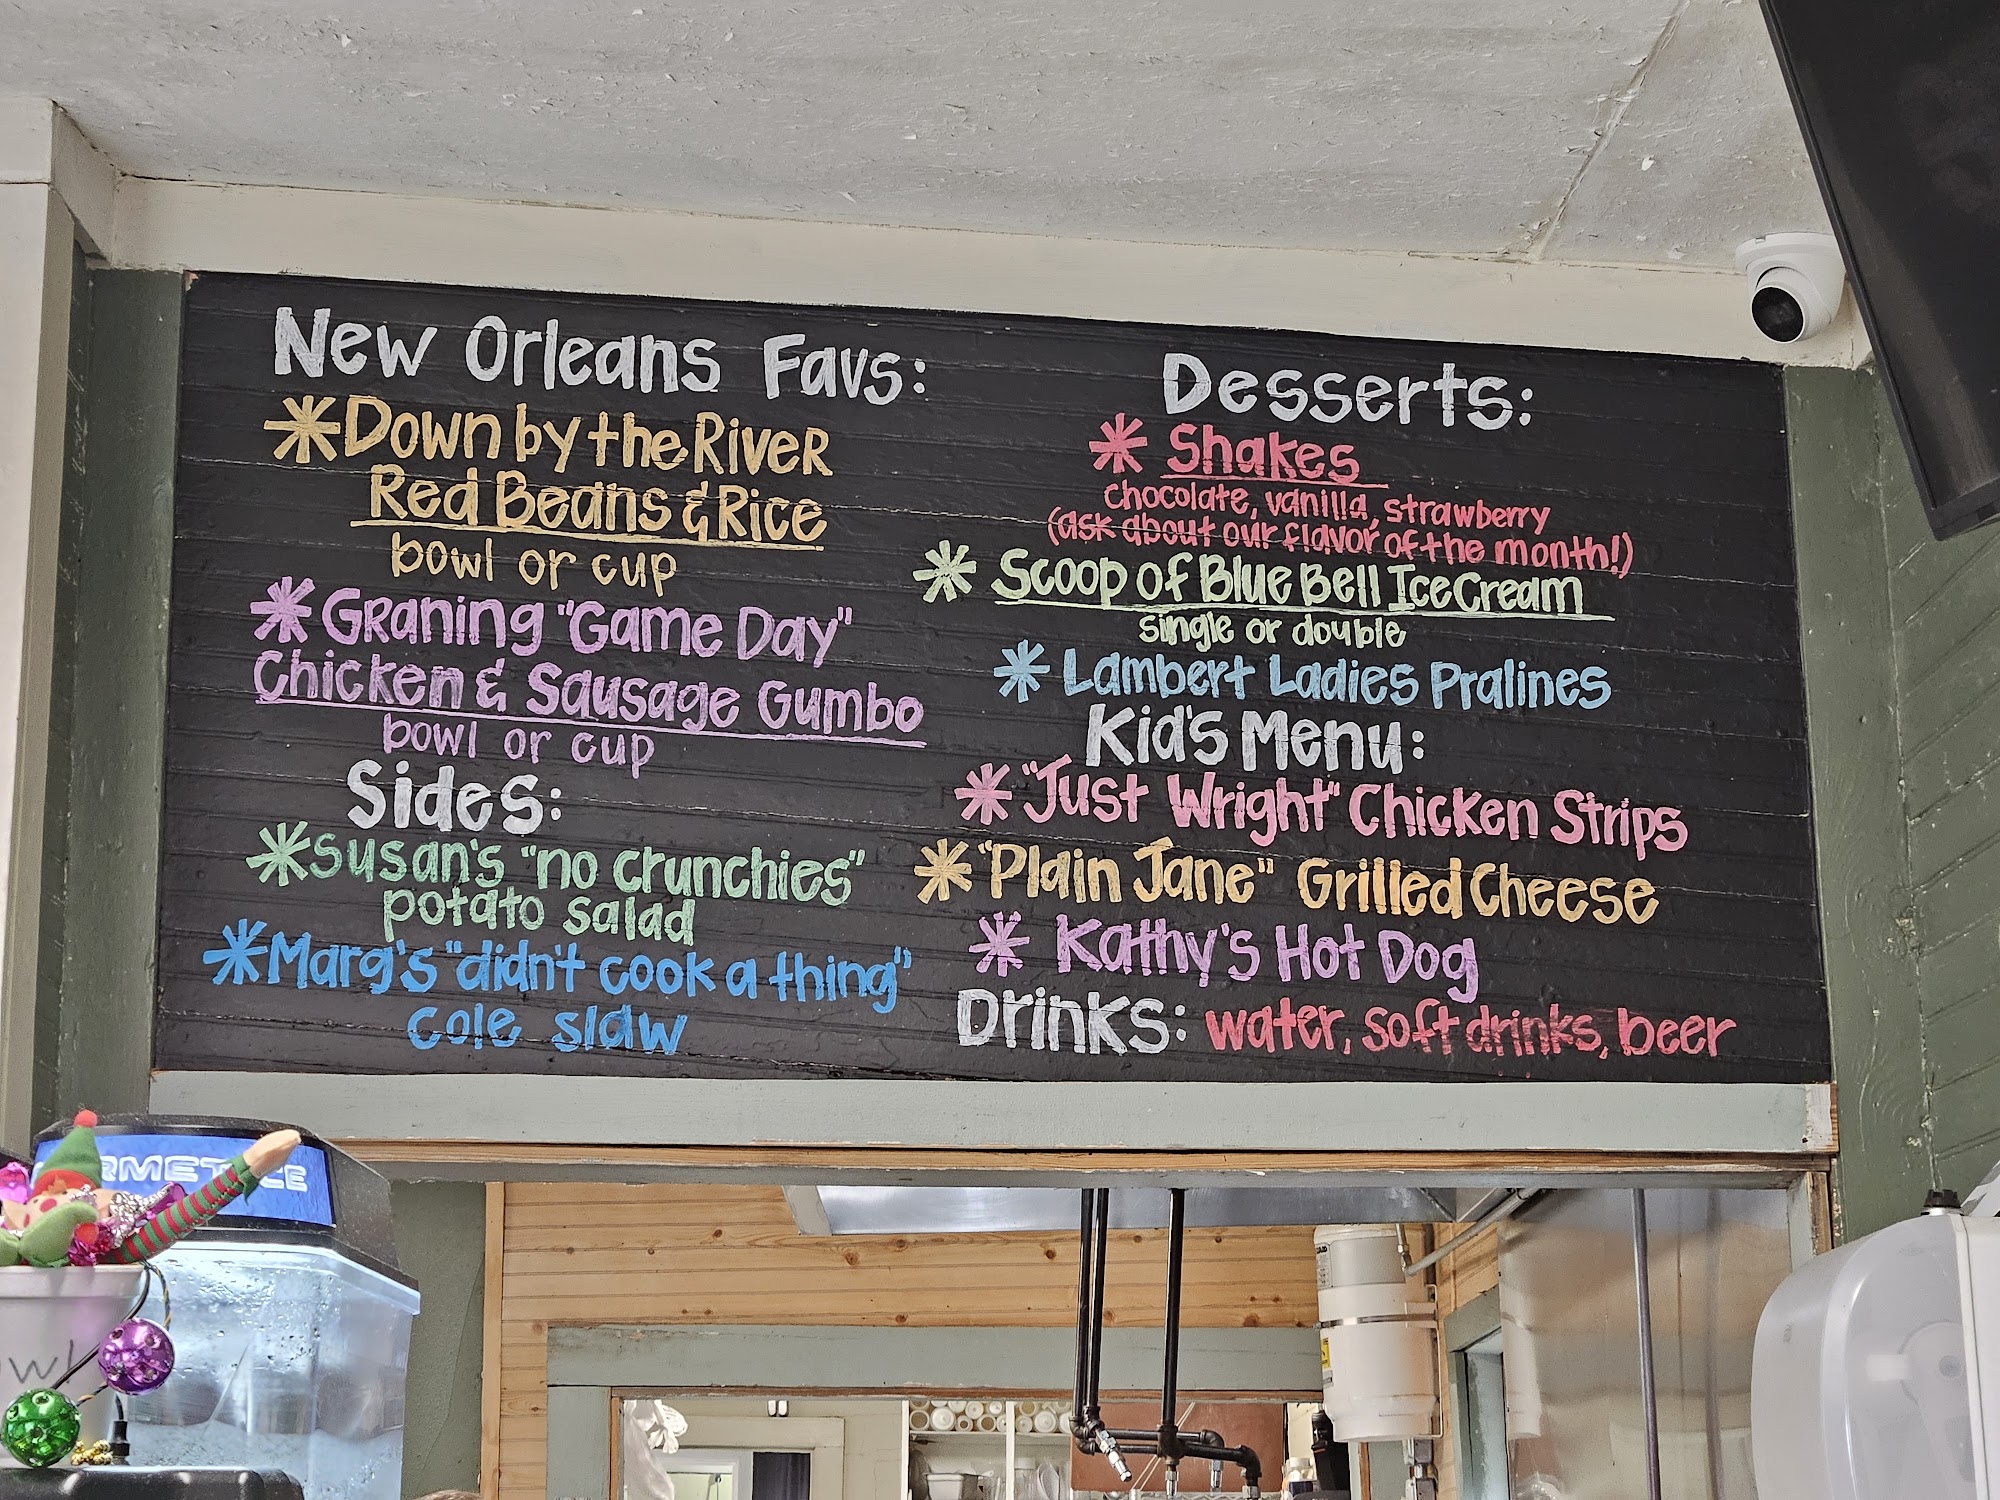 New Orleans Favs:
Down by the River
Red Beans & Rice
bowl or cup
Graning "Game Day"
Chicken & Sausage Gumbo
bowl or cup
Sides:
Susan's "no crunchies"
potato salad
Marg's "didn't cook a thing"
cole slaw
Desserts:
Shakes
chocolate, vanilla, strawberry
(ask about our flavor of the month!)
Scoop of Blue Bell Ice Cream
single or double
Lambert Ladies Pralines
Kid's Menu:
"Just Wright" Chicken Strips
"Plain Jane" Grilled Cheese
Kathy's Hot Dog
Drinks: water, soft drinks, beer